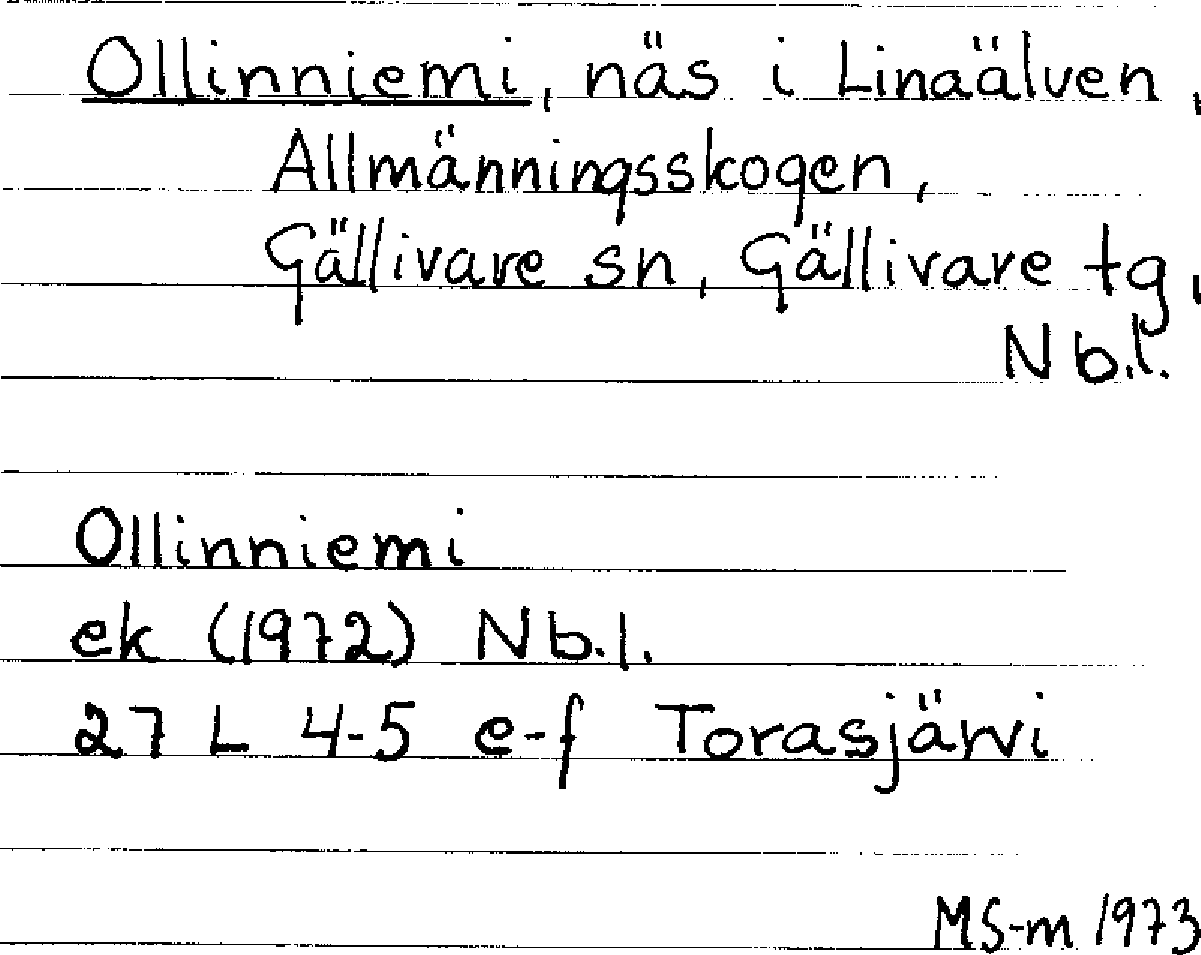 Ollinniemi, näs i Linaälven,
Allmänningsskogen,
Gällivare sn, Gällivare tg,
Nb.l.
Ollinniemi
ek (1972) Nb.l.
27 L 4-5 e-f Torasjärvi
MS-m 1973